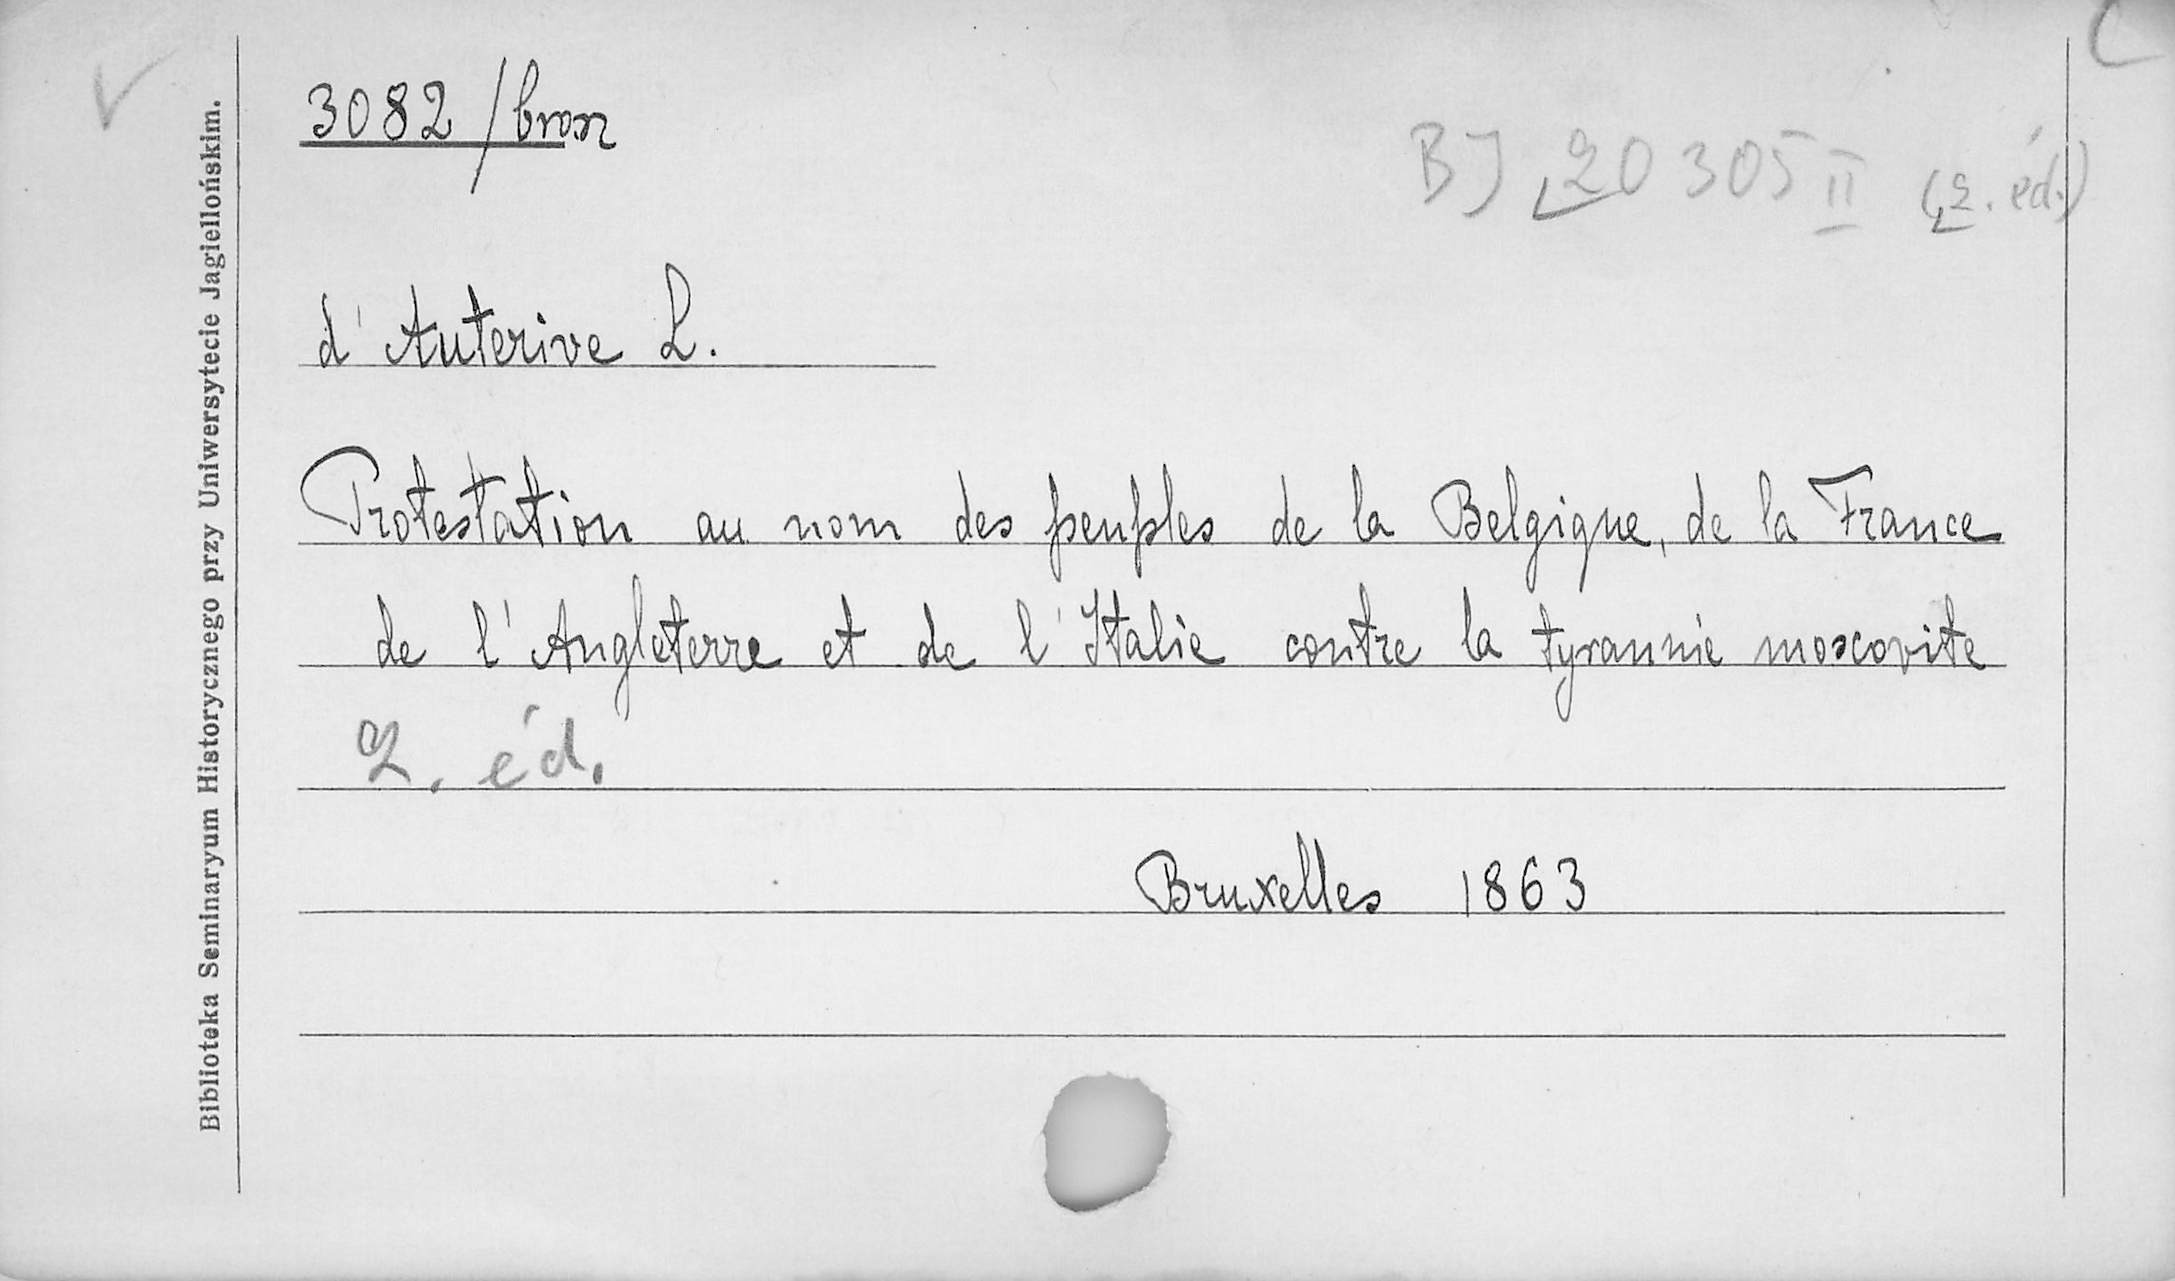 3082/brosz
BJ 20305 II (2. éd.)
d'Auterive L.
Protestation au nom des peuples de la Belgique, de la France
de l'Angleterre et de l'Italie contre la tyrannie moscovite
2. éd.
Bruxelles 1863
Biblioteka Seminaryum Historycznego przy Uniwersytecie Jagiellońskim.